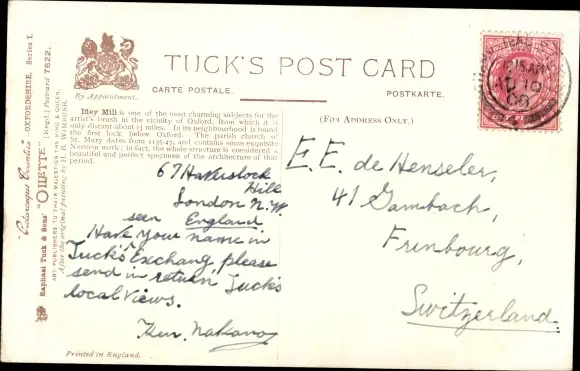 TUCK'S POST CARD
CARTE POSTALE. POSTKARTE.
By Appointment.
(FOR ADDRESS ONLY.)
Iffley Mill is one of the most charming subjects for the
artist's brush in the vicinity of Oxford, from which it is
only distant about 1½ miles. In its neighbourhood is found
the first lock below Oxford. The parish church of
St. Mary dates from 1135-47, and contains some exquisite
Norman work: in fact, the whole structure is considered a
beautiful and perfect specimen of the architecture of that
period.
67 Haverstock
Hill
London N.W.
England
seen
Have your name in
Tuck's Exchang, please
send in return Tuck's
local views.
Ken. Nakano
E. E. de Henseler,
41 Gambach,
Freibourg,
Switzerland.
"Picturesque Counties" OXFORDSHIRE. Series I.
Raphael Tuck & Sons' "OILETTE" [Regd.] Postcard 7622.
ART PUBLISHERS TO THEIR MAJESTIES THE KING & QUEEN.
After the original painting by H. B. WIMBUSH.
Printed in England.